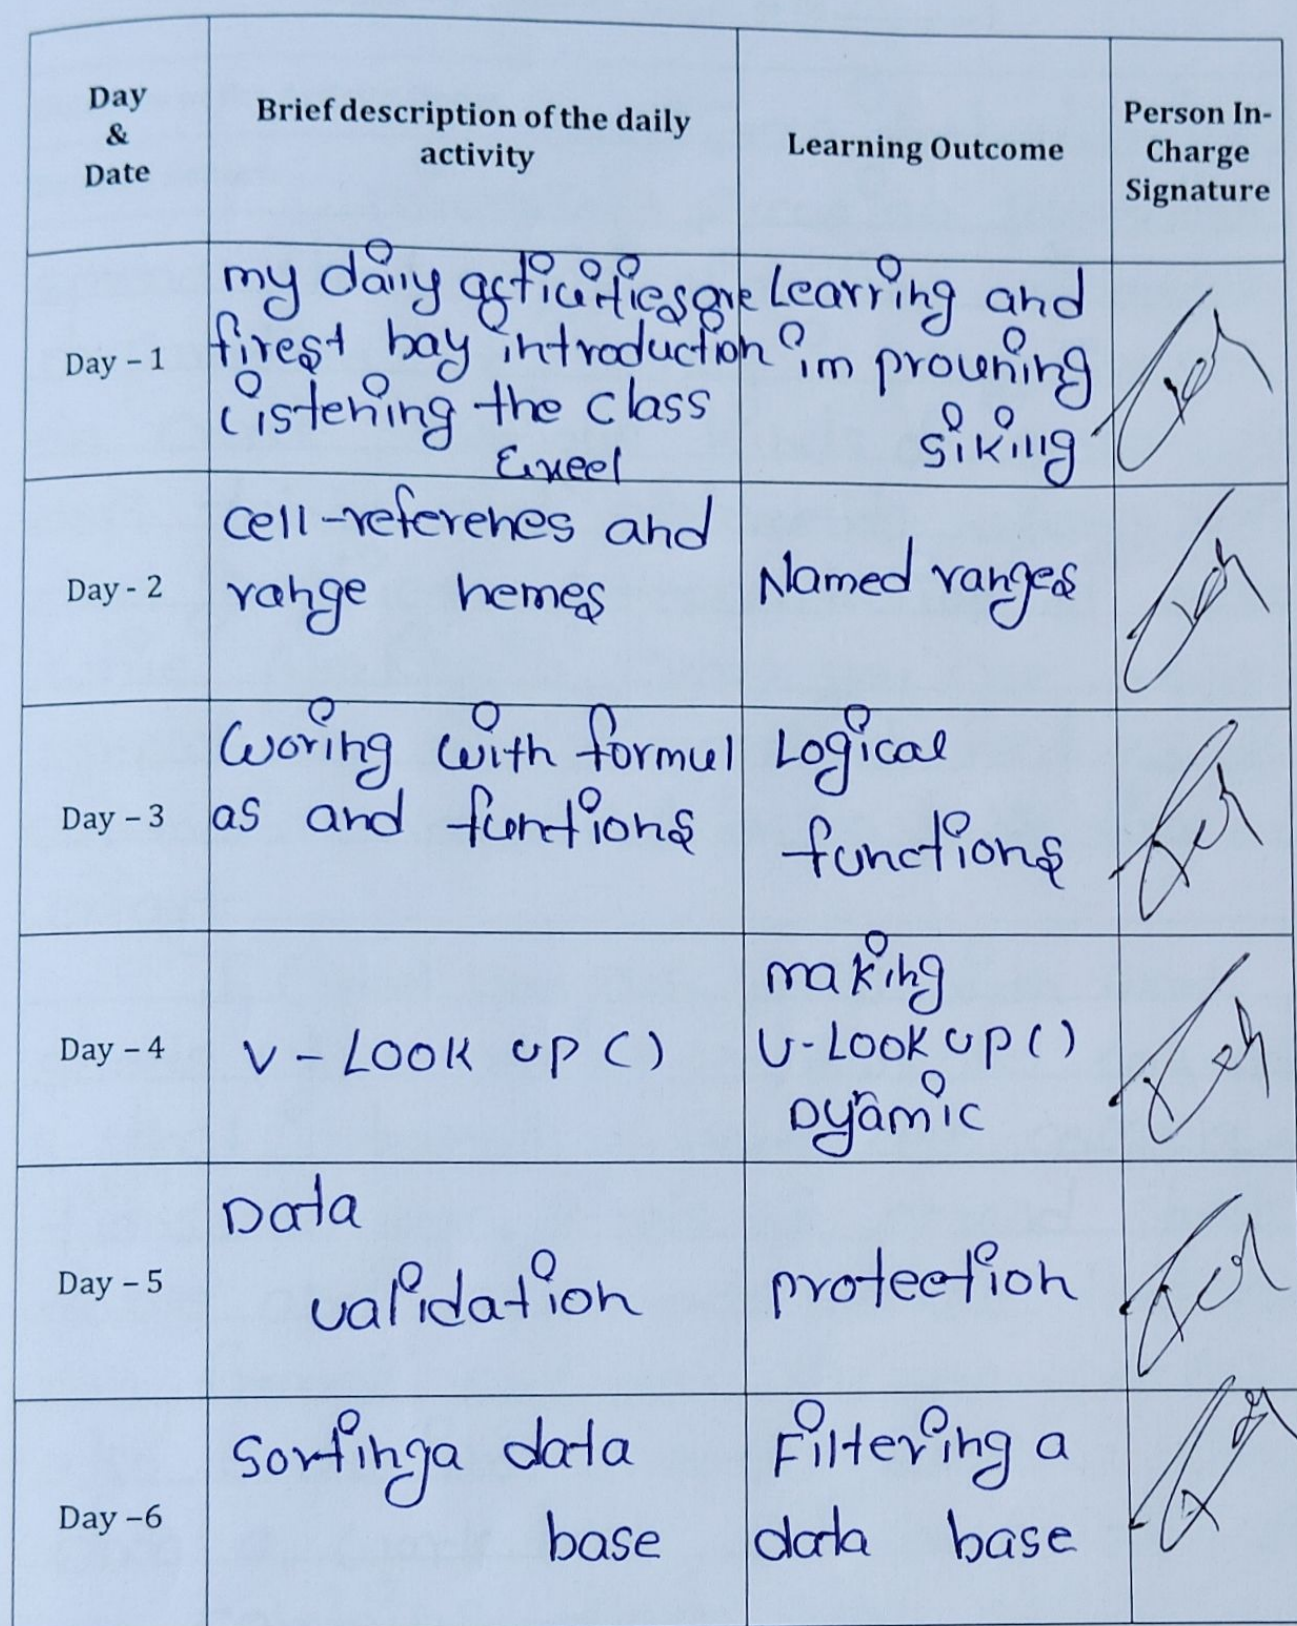 Day
&
Date
Brief description of the daily
activity
Learning Outcome
Person In-
Charge
Signature
Day – 1
my daiiy acticitiesare
firest bay introduction
Listening the class
Exeel
Learring and
im prouning
sikiiig
Day - 2
cell-referenes and
range nemes
Named ranges
Day – 3
Woring with formul
as and funtions
Logical
functions
Day – 4
V - LOOK UP ()
making
V-LOOK UP ()
Dyamic
Day – 5
Data
validation
protection
Day –6
Sortinga data
base
Filtering a
data base